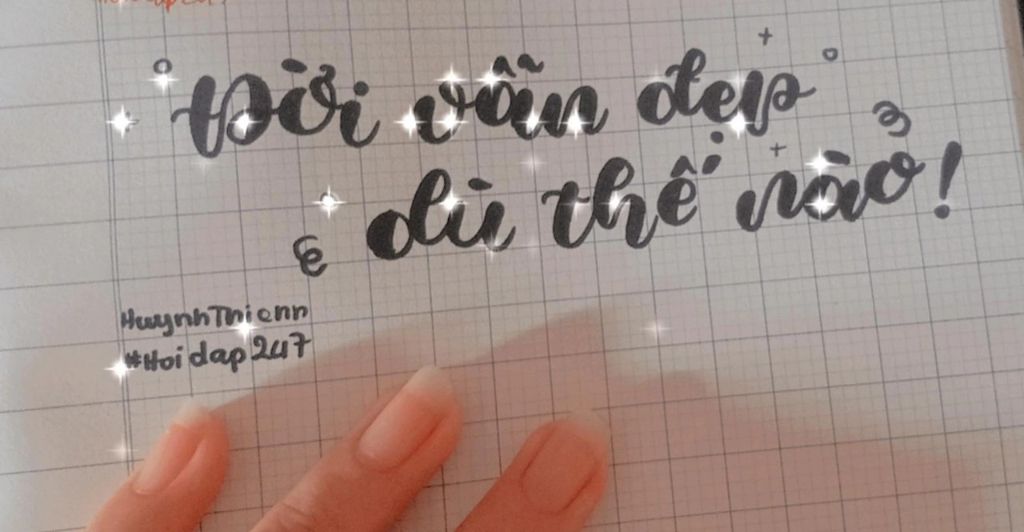 Đời vẫn đẹp
dù thế nào!
HuynhThienn
#Hoidap247